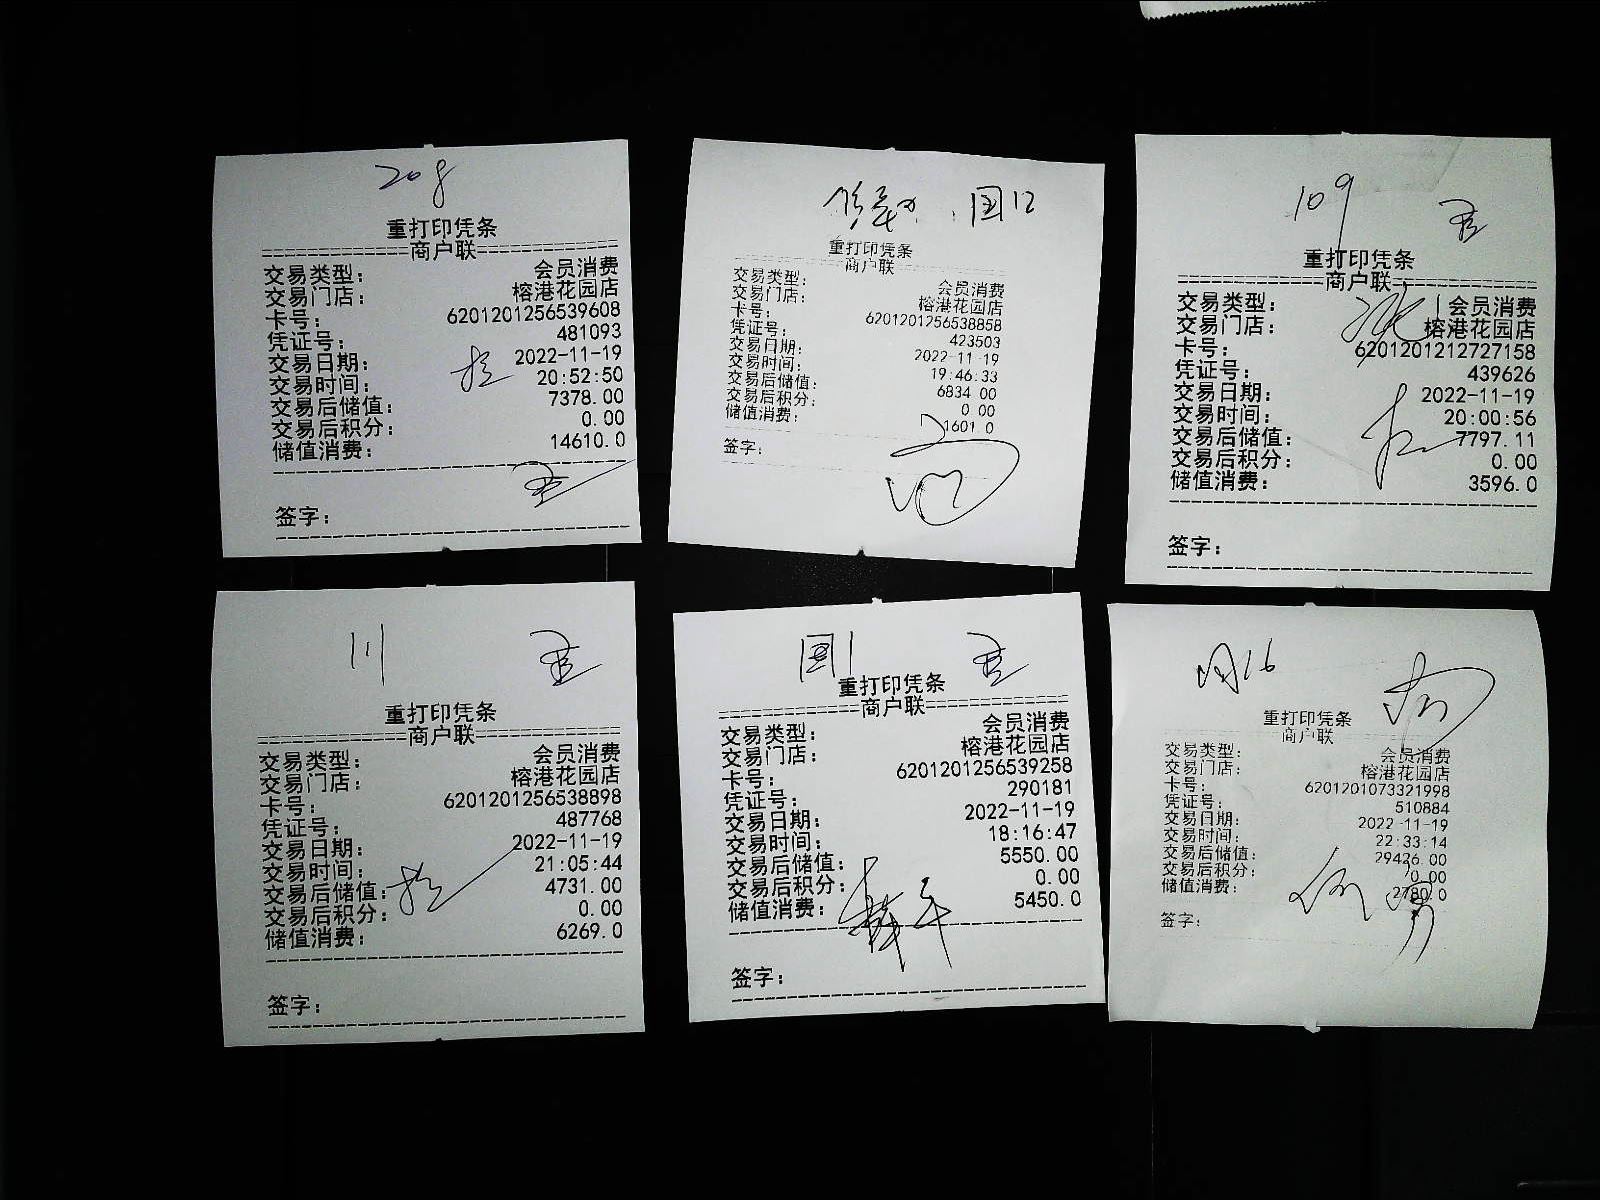 208
重打印凭条
============商户联============
交易类型: 会员消费
交易门店: 榕港花园店
卡号: 6201201256539608
凭证号: 481093
交易日期: 2022-11-19
交易时间: 20:52:50
交易后储值: 7378.00
交易后积分: 0.00
储值消费: 14610.0
签字:
国12
重打印凭条
商户联
交易类型: 会员消费
交易门店: 榕港花园店
卡号: 6201201256538858
凭证号: 423503
交易日期: 2022-11-19
交易时间: 19:46:33
交易后储值: 6834 00
交易后积分: 0 00
储值消费: 1601 0
签字:
109
重打印凭条
============商户联============
交易类型: 会员消费
交易门店: 榕港花园店
卡号: 6201201212727158
凭证号: 439626
交易日期: 2022-11-19
交易时间: 20:00:56
交易后储值: 7797.11
交易后积分: 0.00
储值消费: 3596.0
签字:
111
重打印凭条
============商户联============
交易类型: 会员消费
交易门店: 榕港花园店
卡号: 6201201256538898
凭证号: 487768
交易日期: 2022-11-19
交易时间: 21:05:44
交易后储值: 4731.00
交易后积分: 0.00
储值消费: 6269.0
签字:
国1
重打印凭条
============商户联============
交易类型: 会员消费
交易门店: 榕港花园店
卡号: 6201201256539258
凭证号: 290181
交易日期: 2022-11-19
交易时间: 18:16:47
交易后储值: 5550.00
交易后积分: 0.00
储值消费: 5450.0
签字:
重打印凭条
商户联
交易类型: 会员消费
交易门店: 榕港花园店
卡号: 6201201073321998
凭证号: 510884
交易日期: 2022-11-19
交易时间: 22:33:14
交易后储值: 29426.00
交易后积分: 0.00
储值消费: 2780.0
签字: